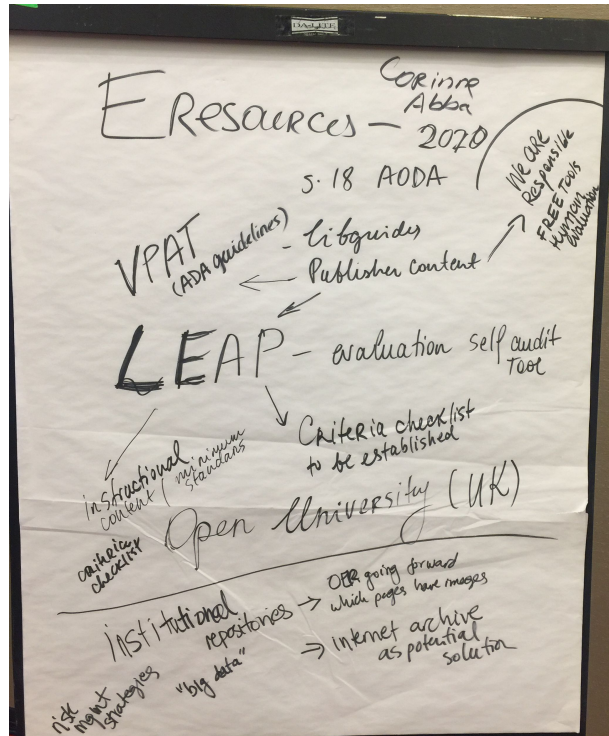 DA-LITE
EResources – Corinne
Abba
2020
s. 18 AODA
We are
Responsible
FREE TOOLS
Human
evaluation
VPAT
(ADA guidelines)
- libguides
- Publisher content
LEAP – evaluation self audit
Tool
Criteria checklist
to be established
instructional
content / minimum
standars
criteria
checklist
Open University (UK)
institutional
repositories → OER going forward
which pages have images
"big data" ⇒ internet archive
as potential
solution
risk
mgmt
strategies